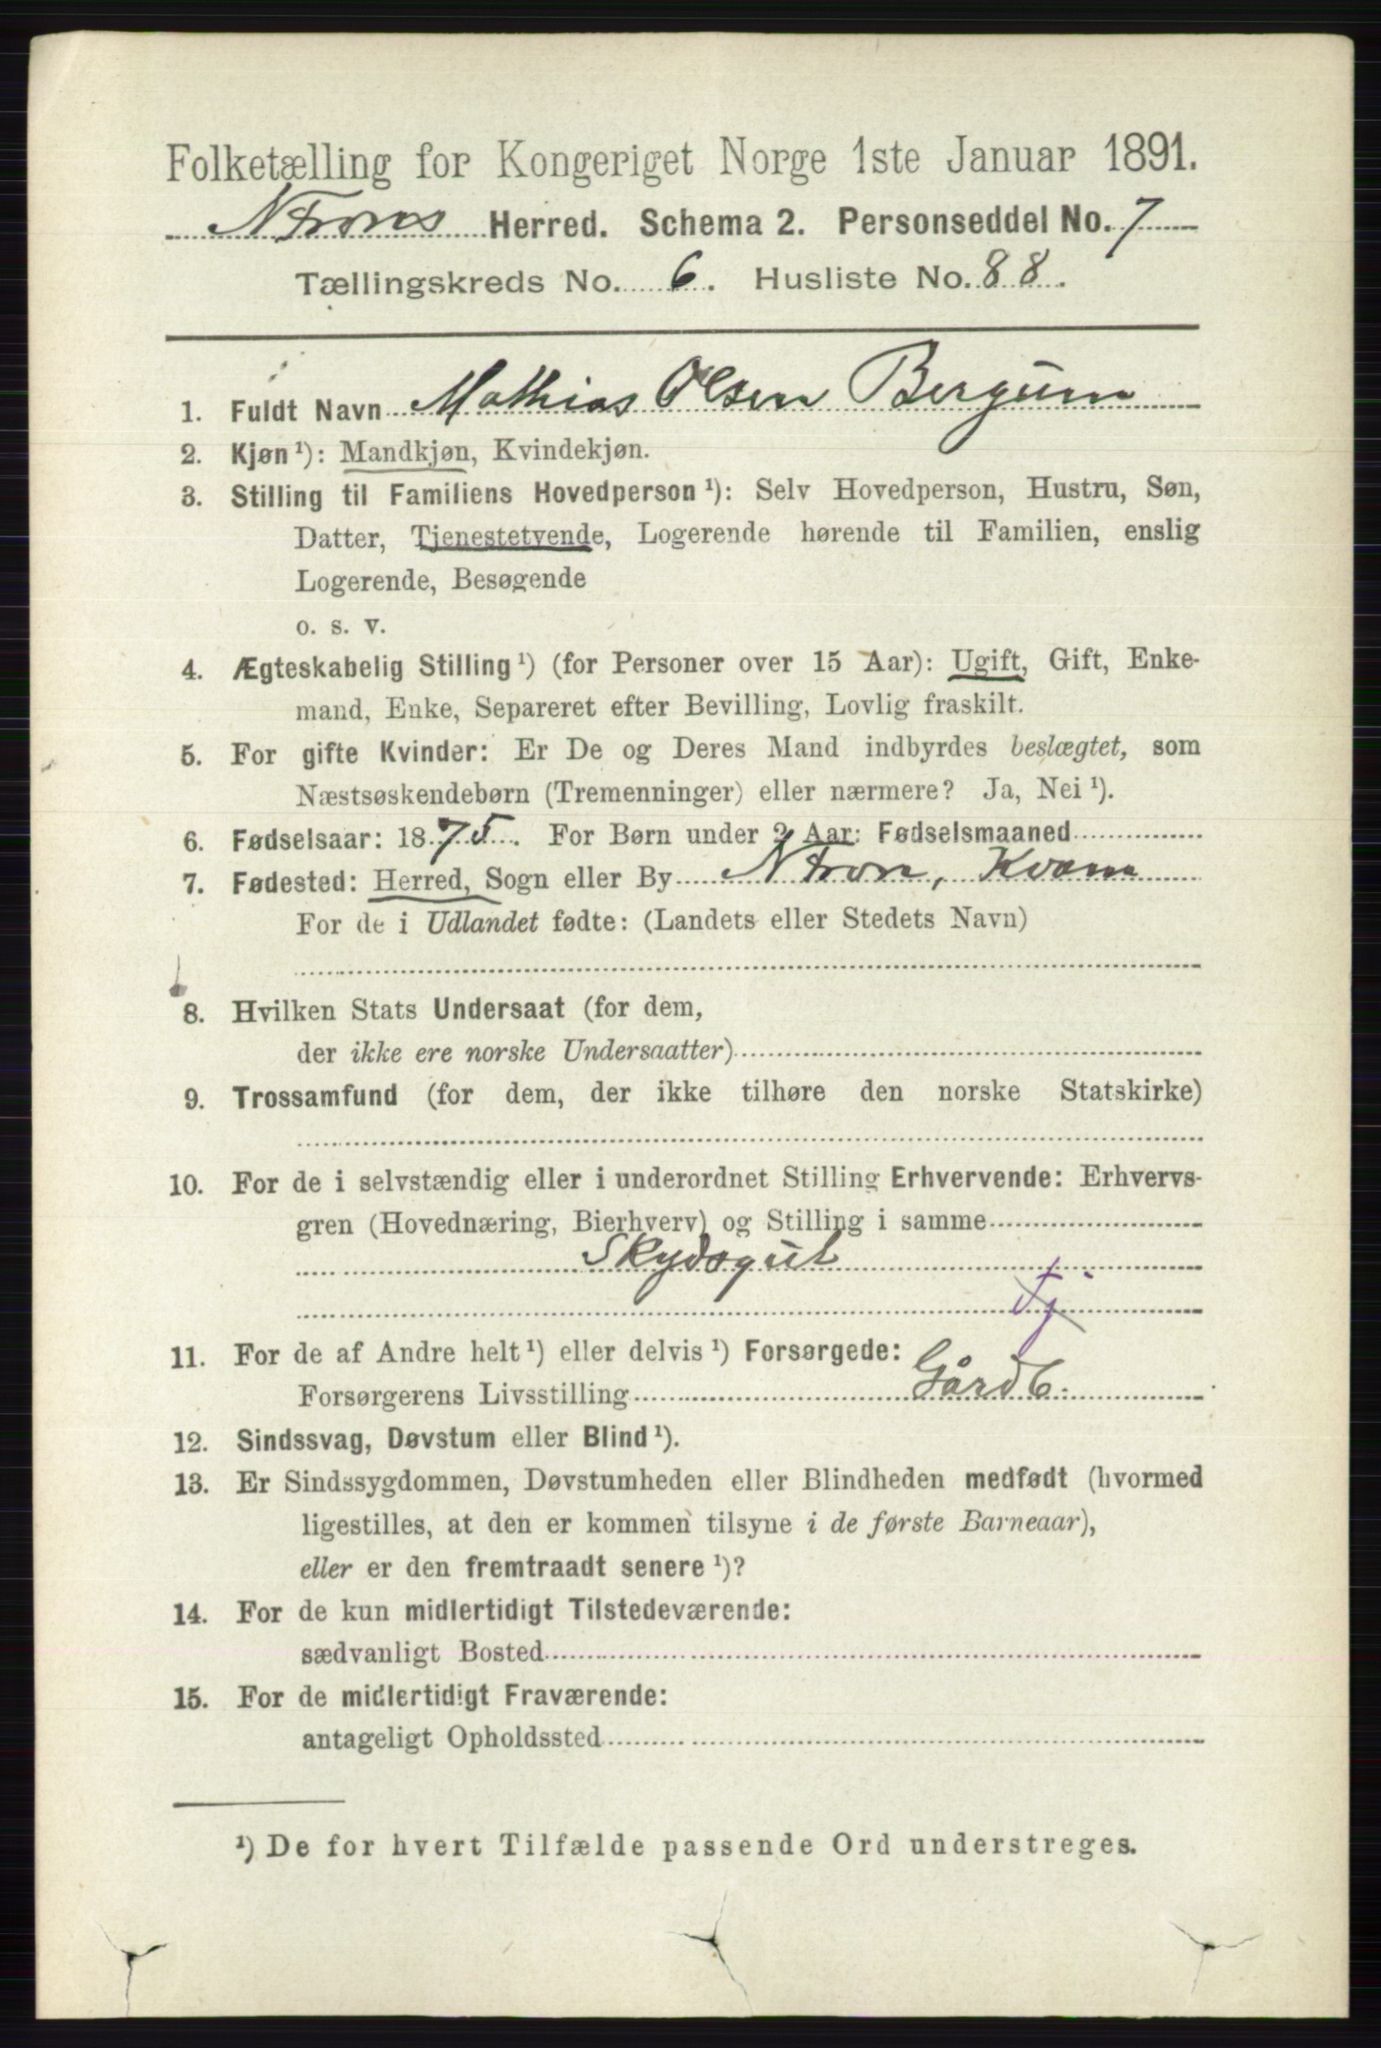 Folketælling for Kongeriget Norge 1ste Januar 1891.
N Frons Herred. Schema 2. Personseddel No. 7
Tællingskreds No. 6. Husliste No. 88.
1. Fuldt Navn Mathias Olsen Bergum
2. Kjøn ¹): Mandkjøn, Kvindekjøn.
3. Stilling til Familiens Hovedperson ¹): Selv Hovedperson, Hustru, Søn,
Datter, Tjenestetyende, Logerende hørende til Familien, enslig
Logerende, Besøgende
o. s. v.
4. Ægteskabelig Stilling ¹) (for Personer over 15 Aar): Ugift, Gift, Enke-
mand, Enke, Separeret efter Bevilling, Lovlig fraskilt.
5. For gifte Kvinder: Er De og Deres Mand indbyrdes beslægtet, som
Næstsøskendebørn (Tremenninger) eller nærmere? Ja, Nei ¹).
6. Fødselsaar: 1875. For Børn under 2 Aar: Fødselsmaaned
7. Fødested: Herred, Sogn eller By N Fron, Kvam
For de i Udlandet fødte: (Landets eller Stedets Navn)
8. Hvilken Stats Undersaat (for dem,
der ikke ere norske Undersaatter)
9. Trossamfund (for dem, der ikke tilhøre den norske Statskirke)
10. For de i selvstændig eller i underordnet Stilling Erhvervende: Erhvervs-
gren (Hovednæring, Bierhverv) og Stilling i samme
Skydsgut
Tj
11. For de af Andre helt ¹) eller delvis ¹) Forsørgede:
Forsørgerens Livsstilling Gårdb.
12. Sindssvag, Døvstum eller Blind ¹).
13. Er Sindssygdommen, Døvstumheden eller Blindheden medfødt (hvormed
ligestilles, at den er kommen tilsyne i de første Barneaar),
eller er den fremtraadt senere ¹)?
14. For de kun midlertidigt Tilstedeværende:
sædvanligt Bosted
15. For de midlertidigt Fraværende:
antageligt Opholdssted
¹) De for hvert Tilfælde passende Ord understreges.